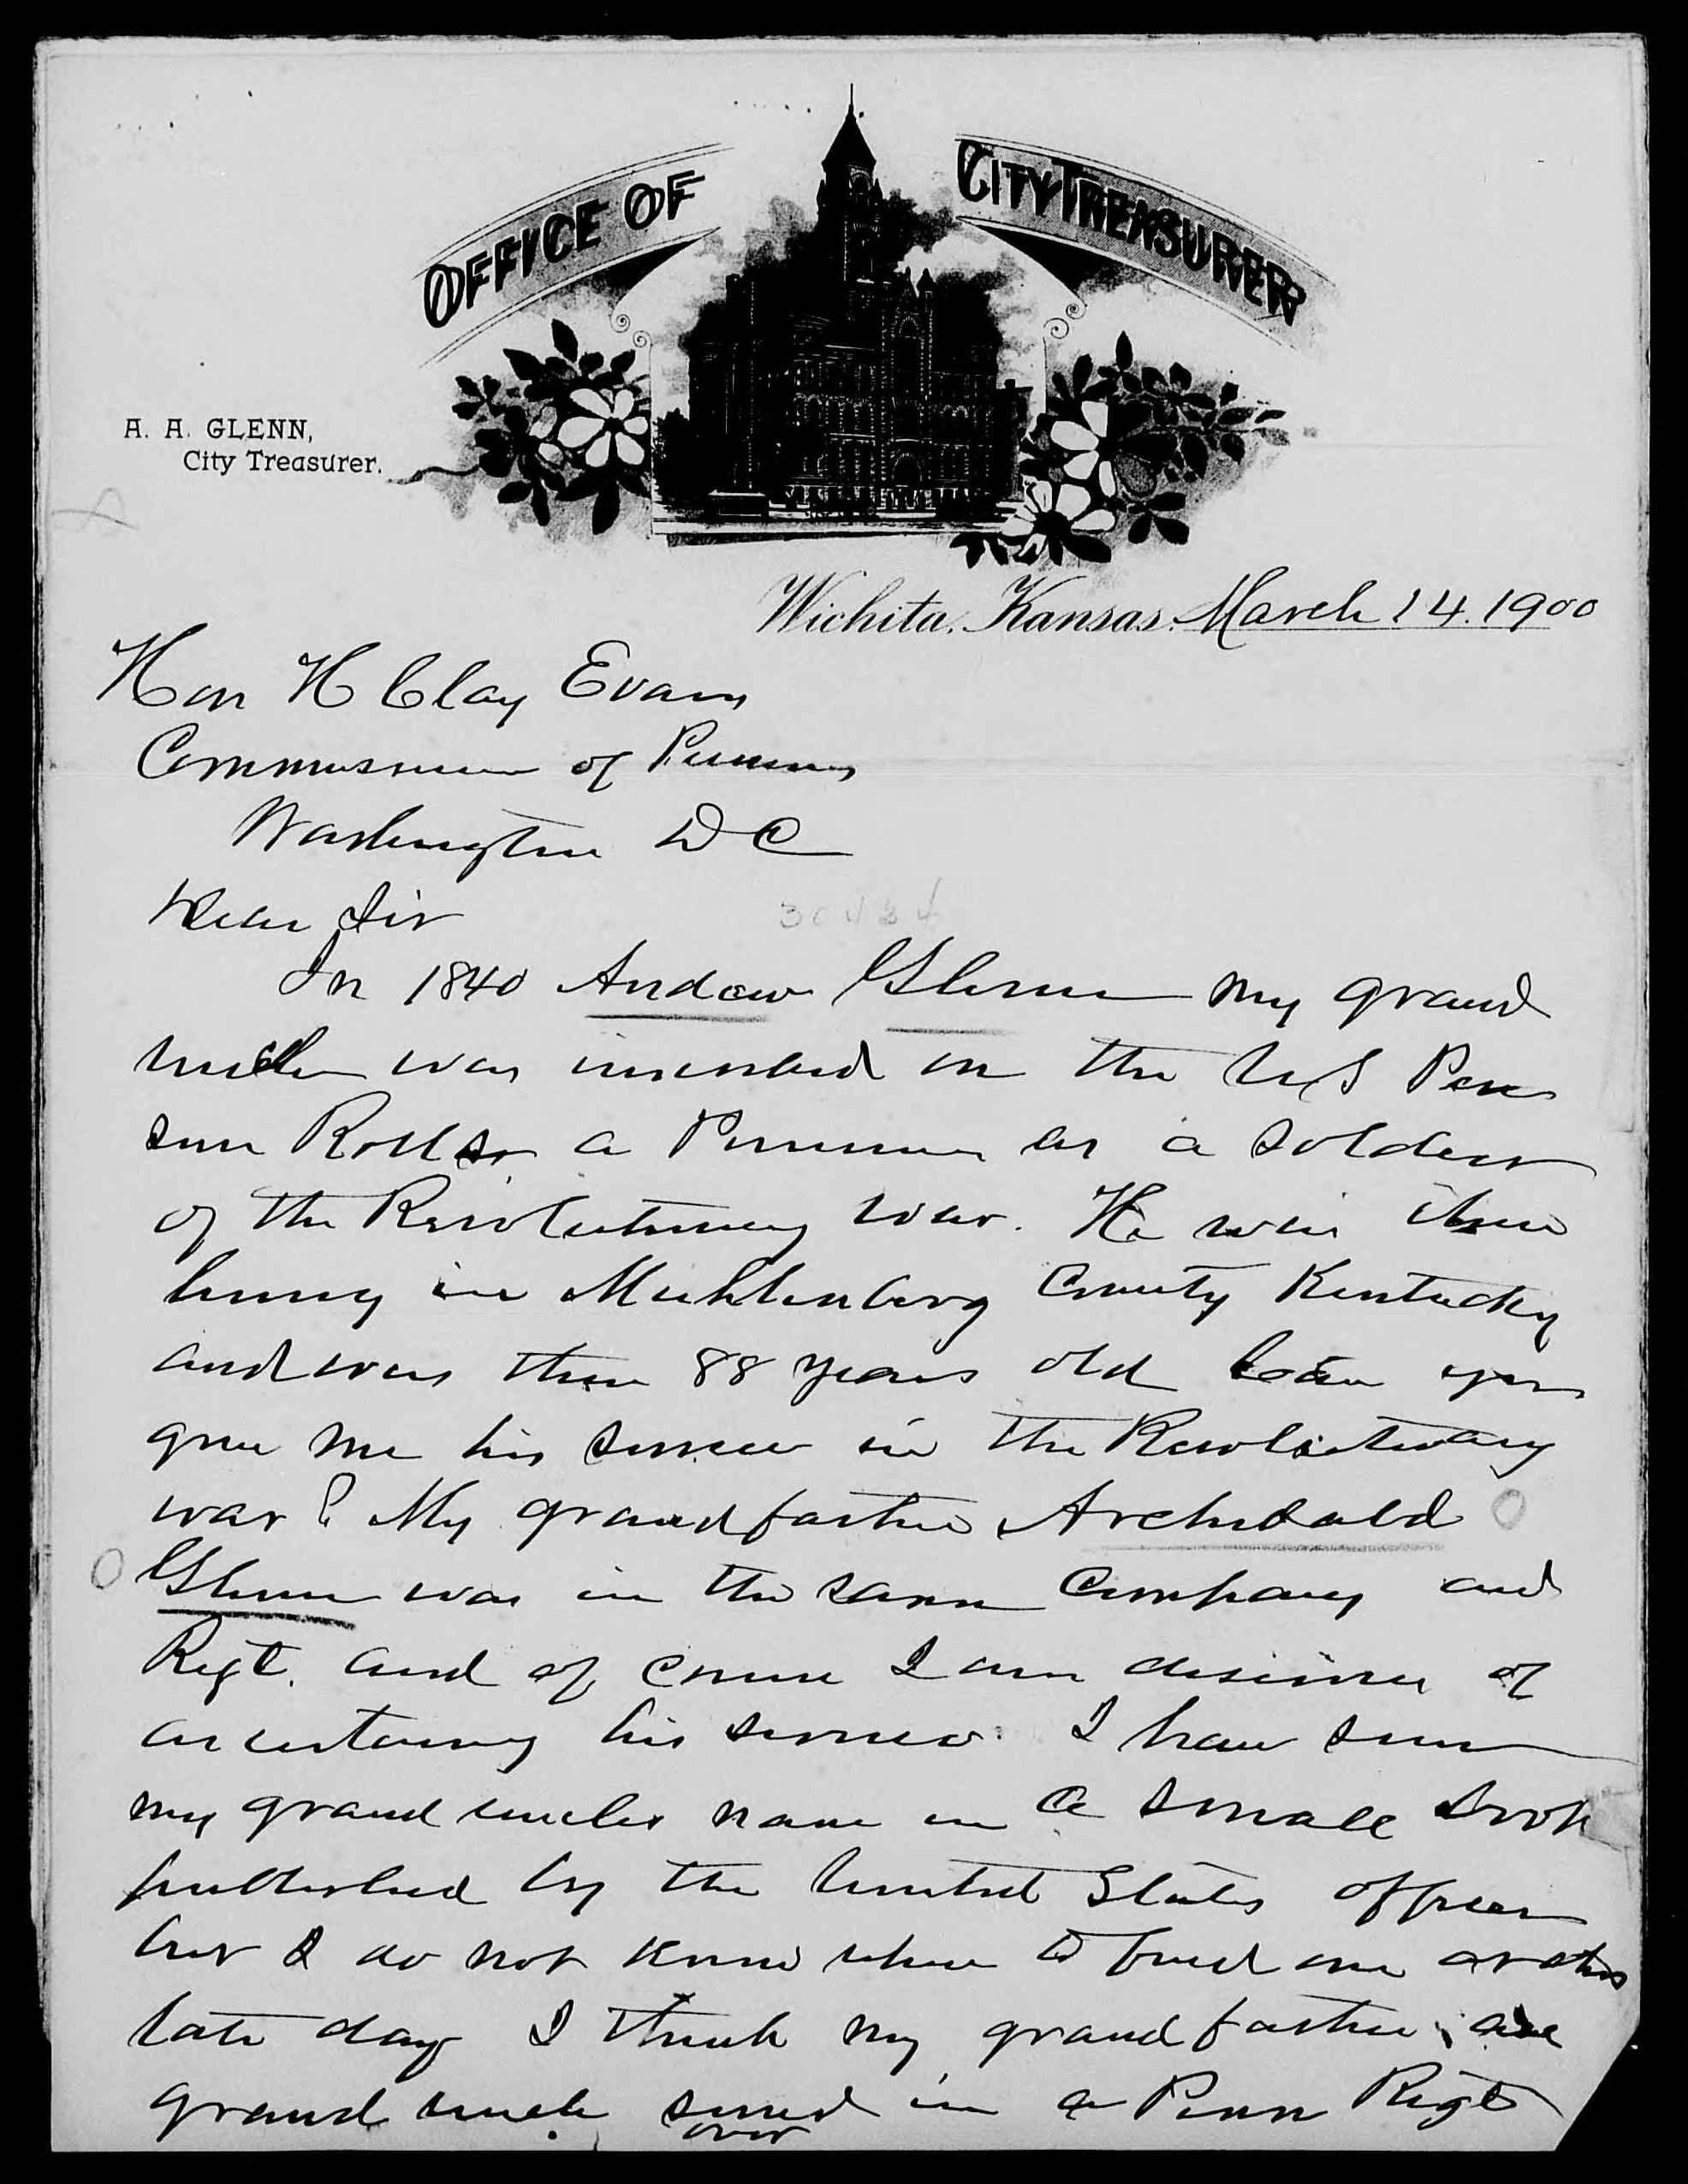 OFFICE OF CITY TREASURER
A. A. GLENN,
City Treasurer.
Wichita, Kansas, March 14. 1900
Hon H Clay Evans
Commissioner of Pensions
Washington D C
Dear Sir
30484
In 1840 Andrew Glenn my grand
uncle was inscribed on the U S Pen
sion Rolls a Pensioner as a soldier
of the Revolutionary war. He was then
living in Muhlenberg County Kentucky
and was then 88 years old Can you
give me his service in the Revolutionary
war? My grandfather Archibald
Glenn was in the same Company and
Regt. and of course I am desirous of
ascertaining his service. I have seen
my grand uncles name in a small book
published by the United States officers
but I do not know where to find one at this
late day I think my grandfather and
grand uncle served in a Penn Regt
over